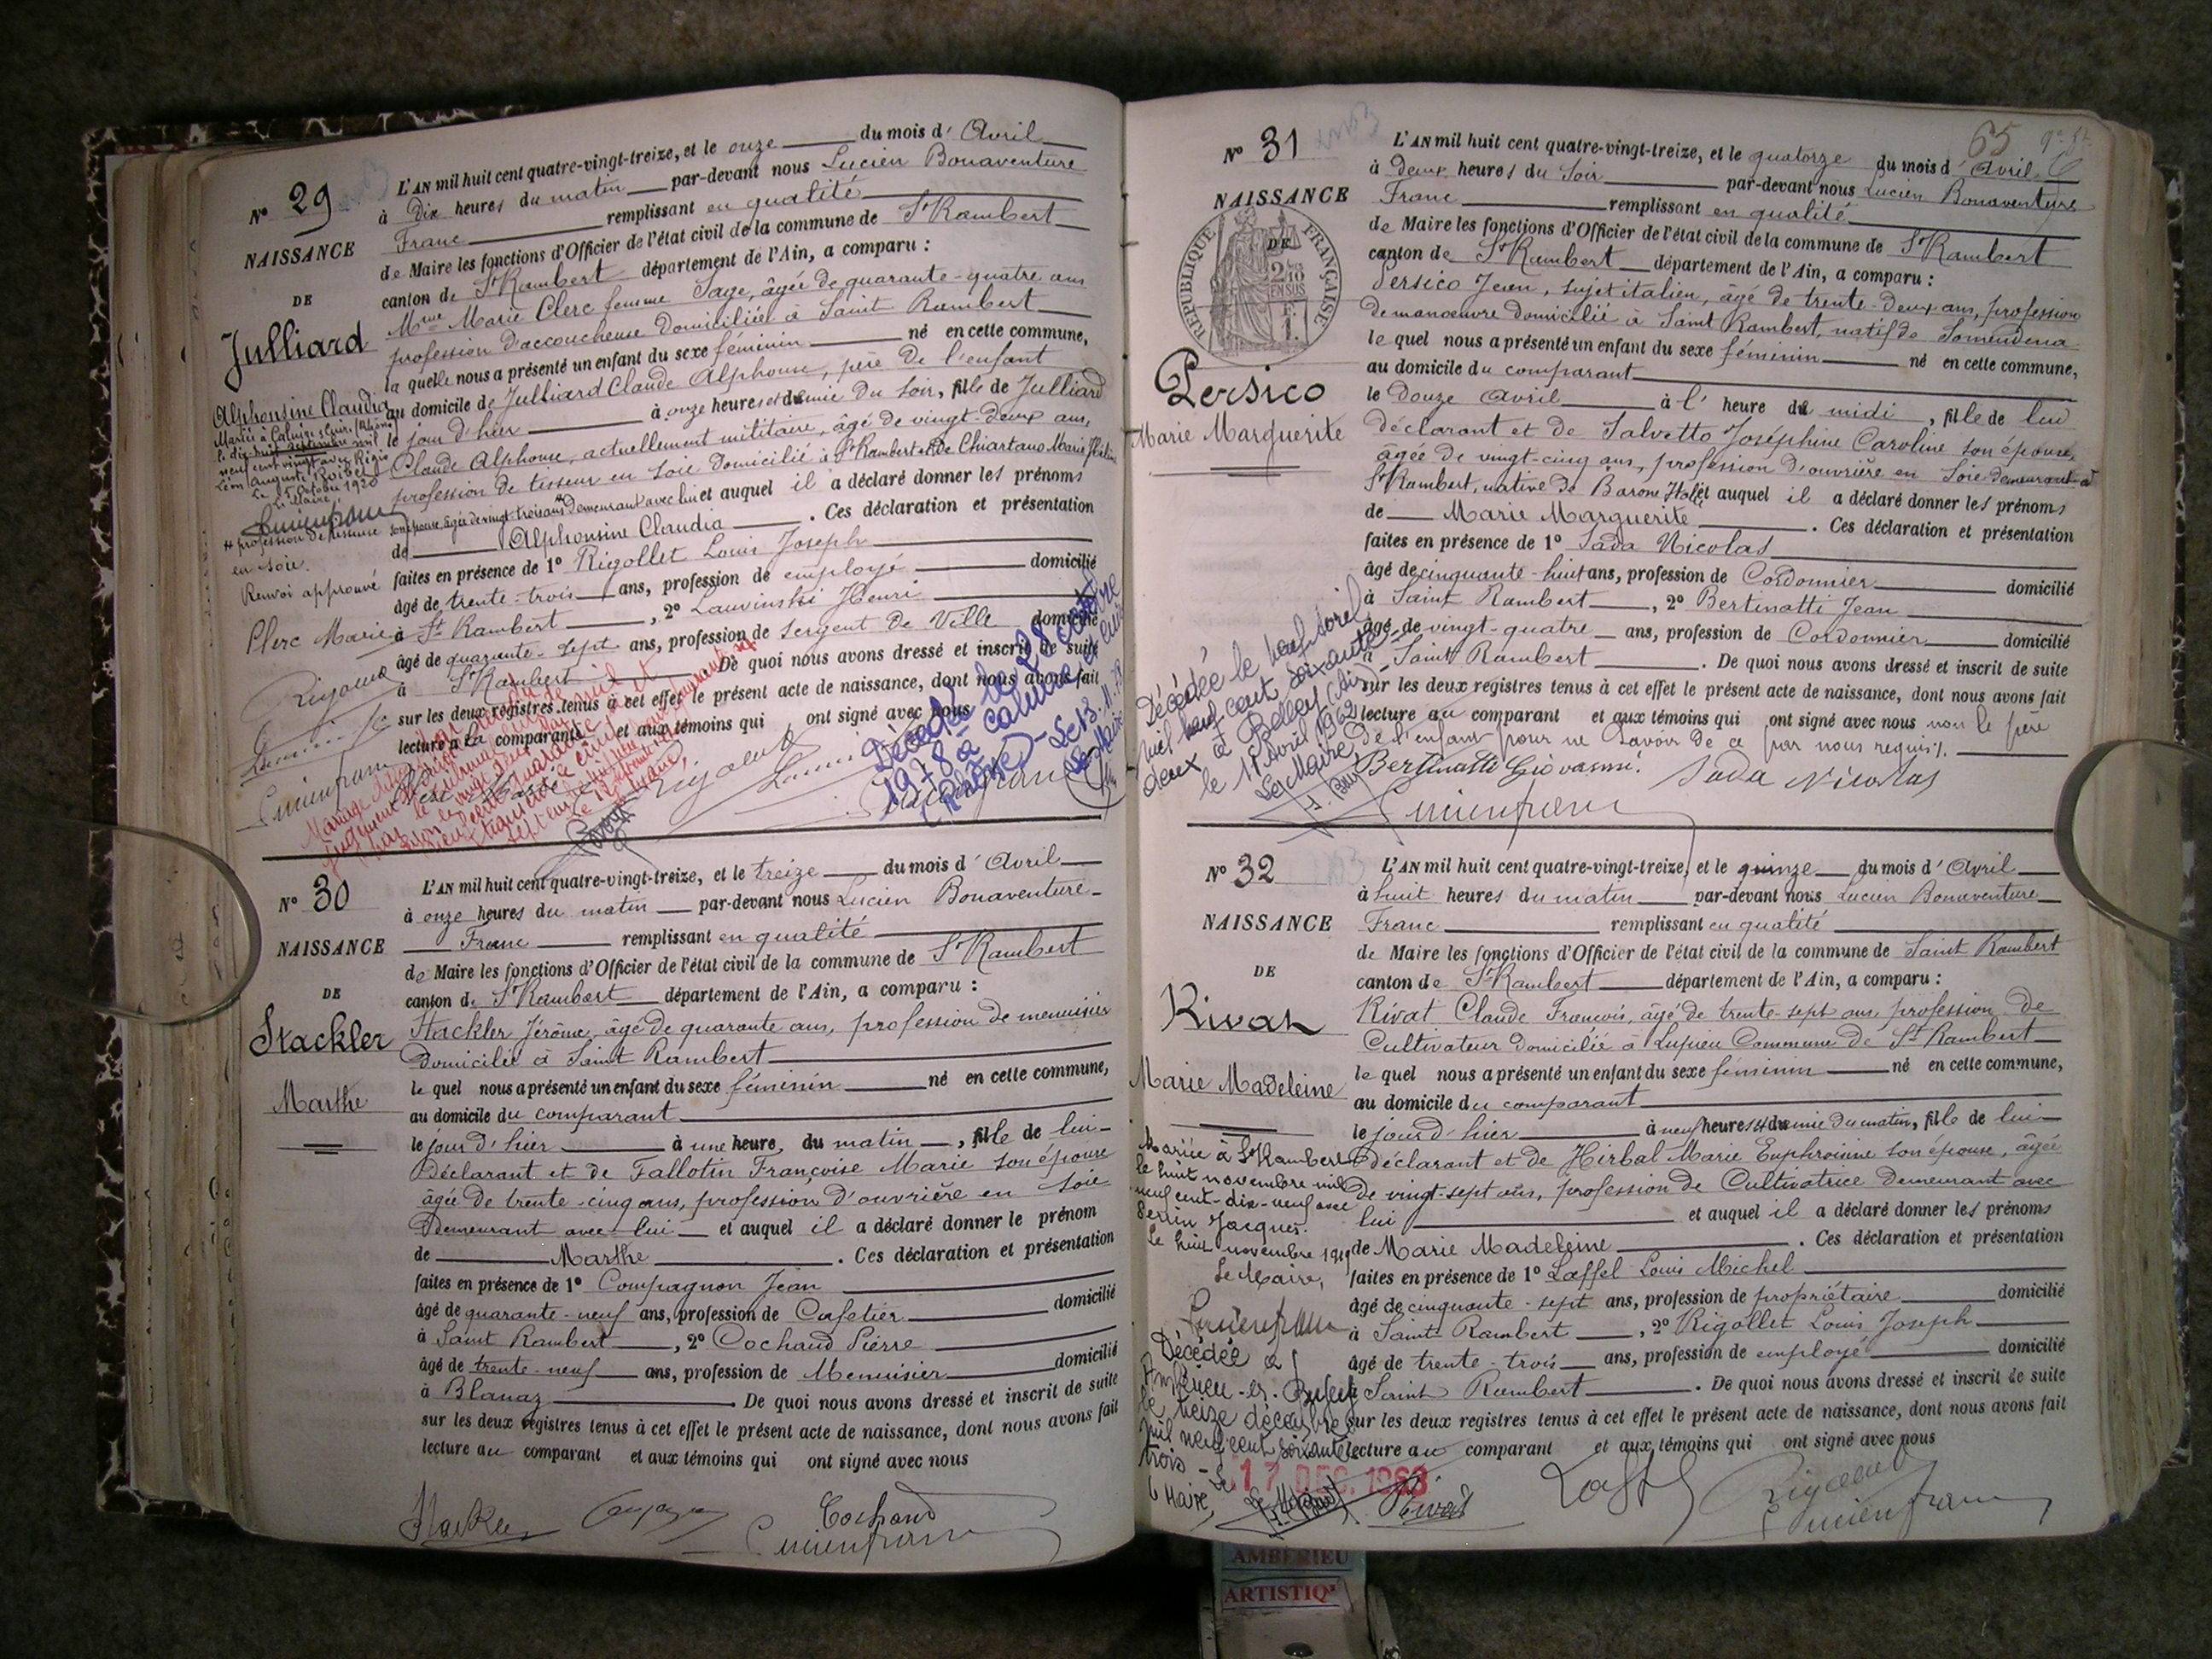 N° 29
NAISSANCE
DE
Julliard
Alphonsine Claudia
Mariée à Caluire et Cuire (Rhône)
le dix huit septembre mil
neuf cent vingt avec Régis
Léon Auguste
Le 15 Octobre 1920
Le Maire,
profession de tisseuse
en soie.
Renvoi approuvé
Clerc Marie
L'AN mil huit cent quatre-vingt-treize, et le onze du mois d'Avril
à Dix heures du matin par-devant nous Lucien Bonaventure
Franc remplissant en qualité
de Maire les fonctions d'Officier de l'état civil de la commune de St Rambert
canton de St Rambert département de l'Ain, a comparu :
Mme Marie Clerc femme Sage, âgée de quarante-quatre ans
profession d'accoucheuse Domiciliée à Saint Rambert
la quelle nous a présenté un enfant du sexe féminin né en cette commune,
au domicile de Julliard Claude Alphonse, père de l'enfant
le jour d'hier à onze heures et demie du soir, fille de Julliard
Claude Alphonse, actuellement militaire, âgé de vingt-deux ans,
profession de tisseur en soie domicilié à St Rambert et de Chiartano Marie
son épouse âgée de vingt-trois ans demeurant avec lui et auquel il a déclaré donner les prénoms
de Alphonsine Claudia. Ces déclaration et présentation
faites en présence de 1° Rigollet Louis Joseph
âgé de trente-trois ans, profession de employé domicilié
à St Rambert, 2° Lauvinski Henri
âgé de quarante-sept ans, profession de sergent de Ville domicilié
à St Rambert. De quoi nous avons dressé et inscrit de suite
sur les deux registres tenus à cet effet le présent acte de naissance, dont nous avons fait
lecture à la comparante et aux témoins qui ont signé avec nous
Décédée le 28 octobre
1978 à Caluire et Cuire
(Rhône) - Le 13.11.78
Le Maire
N° 30
NAISSANCE
DE
Stackler
Marthe
L'AN mil huit cent quatre-vingt-treize, et le treize du mois d'Avril
à onze heures du matin par-devant nous Lucien Bonaventure
Franc remplissant en qualité
de Maire les fonctions d'Officier de l'état civil de la commune de St Rambert
canton de St Rambert département de l'Ain, a comparu :
Stackler Jérôme, âgé de quarante ans, profession de menuisier
Domicilié à Saint Rambert
le quel nous a présenté un enfant du sexe féminin né en cette commune,
au domicile du comparant
le jour d'hier à une heure, du matin, fille de lui-
Déclarant et de Fallotin Françoise Marie son épouse
âgée de trente-cinq ans, profession d'ouvrière en soie
Demeurant avec lui et auquel il a déclaré donner le prénom
de Marthe. Ces déclaration et présentation
faites en présence de 1° Compagnon Jean
âgé de quarante-neuf ans, profession de Cafetier domicilié
à Saint Rambert, 2° Cochand Pierre
âgé de trente-neuf ans, profession de Menuisier domicilié
à Blanaz. De quoi nous avons dressé et inscrit de suite
sur les deux registres tenus à cet effet le présent acte de naissance, dont nous avons fait
lecture au comparant et aux témoins qui ont signé avec nous
Cochand
65
N° 31
NAISSANCE
DE
RÉPUBLIQUE FRANÇAISE
Persico
Marie Marguerite
L'AN mil huit cent quatre-vingt-treize, et le quatorze du mois d'Avril
à Deux heures du Soir par-devant nous Lucien Bonaventure
Franc remplissant en qualité
de Maire les fonctions d'Officier de l'état civil de la commune de St Rambert
canton de St Rambert département de l'Ain, a comparu :
Persico Jean, sujet italien, âgé de trente-deux ans, profession
de manœuvre domicilié à Saint Rambert, natif de
le quel nous a présenté un enfant du sexe féminin né en cette commune,
au domicile du comparant
le Douze Avril à l'heure de midi, fille de lui
déclarant et de Salvetto Joséphine Caroline son épouse,
âgée de vingt-cinq ans, profession d'ouvrière en Soie demeurant à
St Rambert, native de Barone et auquel il a déclaré donner les prénoms
de Marie Marguerite. Ces déclaration et présentation
faites en présence de 1° Sada Nicolas
âgé de cinquante-huit ans, profession de Cordonnier domicilié
à Saint Rambert, 2° Bertinatti Jean
âgé de vingt-quatre ans, profession de Cordonnier domicilié
à Saint Rambert. De quoi nous avons dressé et inscrit de suite
sur les deux registres tenus à cet effet le présent acte de naissance, dont nous avons fait
lecture au comparant et aux témoins qui ont signé avec nous non le père
de l'enfant pour ne savoir de ce par nous requis.
Bertinatti Giovanni. Sada Nicolas
Décédée le neuf Avril
mil neuf cent soixante
deux à Belley (Ain)
le 11 Avril 1962
Le Maire,
N° 32
NAISSANCE
DE
Rivat
Marie Madeleine
Mariée à St Rambert
le huit novembre mil
neuf cent-dix-neuf avec
Perrin Jacques.
Le huit novembre 1919
Le Maire,
Décédée à
Ambérieu-en-Bugey
le treize décembre
mil neuf cent soixante
trois - Le
17 DEC. 1963
Le Maire,
L'AN mil huit cent quatre-vingt-treize, et le quinze du mois d'Avril
à huit heures du matin par-devant nous Lucien Bonaventure
Franc remplissant en qualité
de Maire les fonctions d'Officier de l'état civil de la commune de Saint Rambert
canton de St Rambert département de l'Ain, a comparu :
Rivat Claude François, âgé de trente-sept ans, profession de
Cultivateur domicilié à Lupieu Commune de St Rambert
le quel nous a présenté un enfant du sexe féminin né en cette commune,
au domicile du comparant
le jour d'hier à neuf heures et demie du matin, fille de lui
déclarant et de Hirbal Marie Euphrosine son épouse, âgée
de vingt-sept ans, profession de Cultivatrice demeurant avec
lui et auquel il a déclaré donner les prénoms
de Marie Madeleine. Ces déclaration et présentation
faites en présence de 1° Laffel Louis Michel
âgé de cinquante-sept ans, profession de propriétaire domicilié
à Saint Rambert, 2° Rigollet Louis Joseph
âgé de trente-trois ans, profession de employé domicilié
à Saint Rambert. De quoi nous avons dressé et inscrit de suite
sur les deux registres tenus à cet effet le présent acte de naissance, dont nous avons fait
lecture au comparant et aux témoins qui ont signé avec nous
Rivat
AMBERIEU
ARTISTIQ